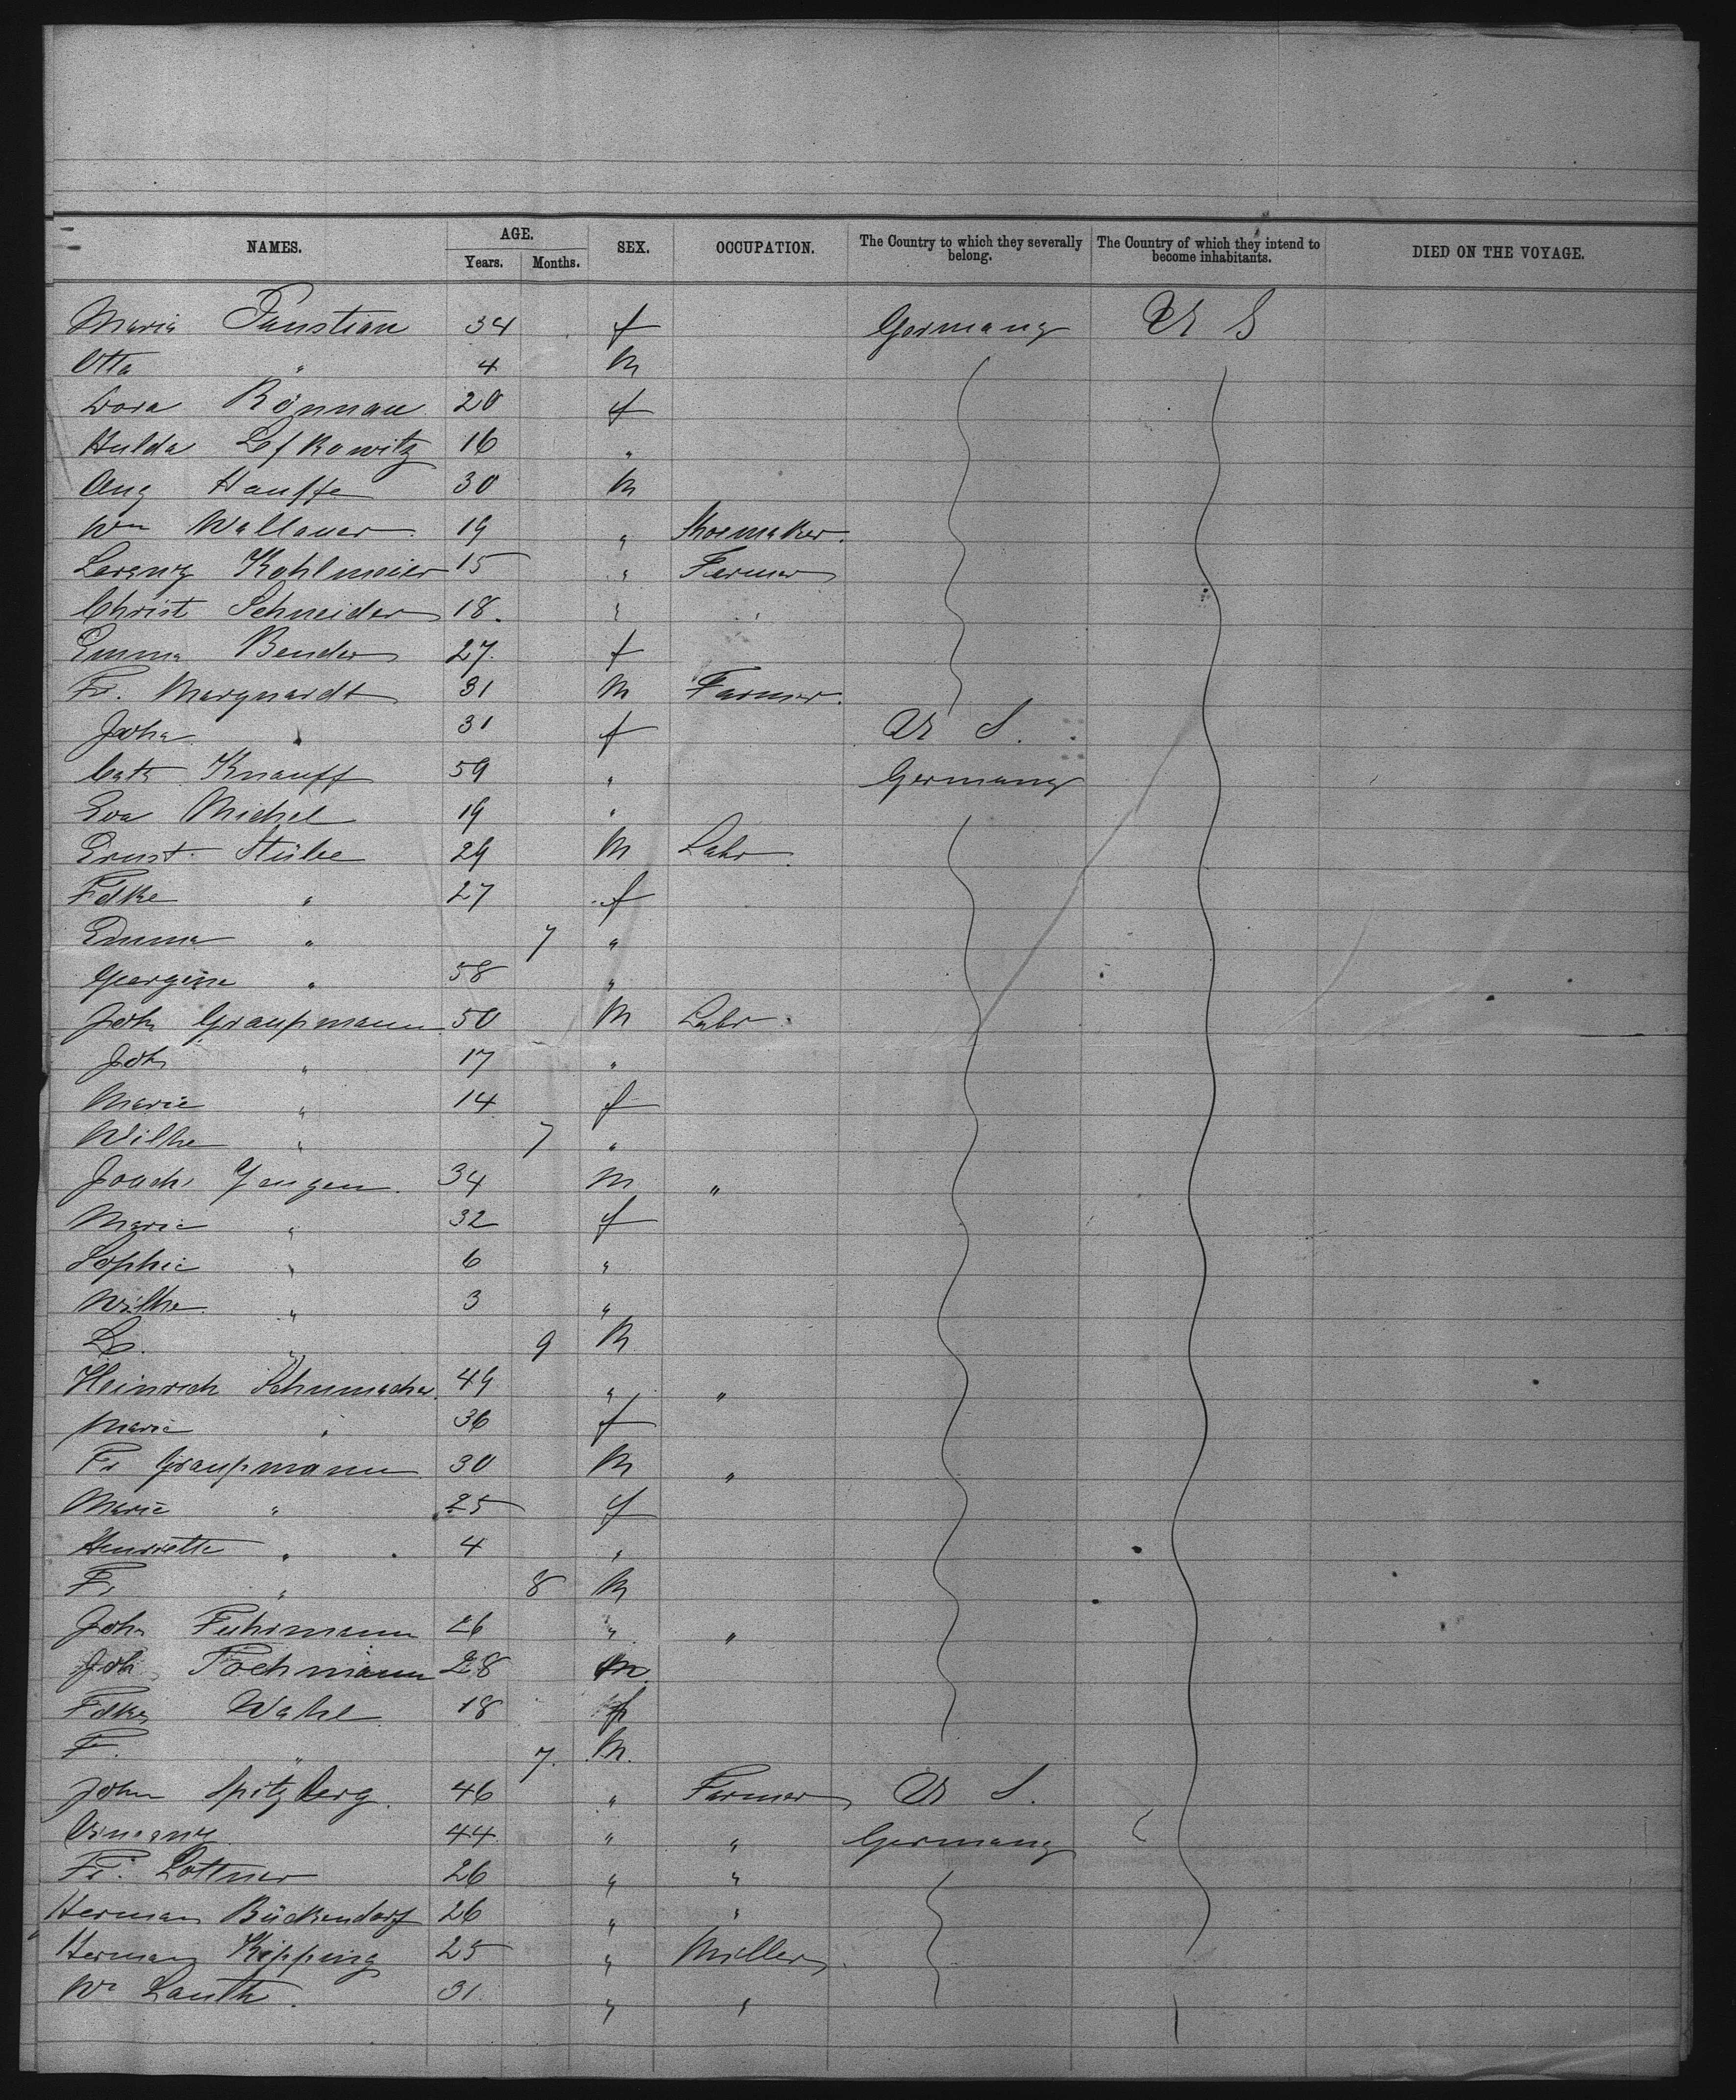 NAMES. AGE. SEX. OCCUPATION. The Country to which they severally belong. The Country of which they intend to become inhabitants. DIED ON THE VOYAGE.
Years. Months.
Maria Faustian 34 f Germany U S
Otto " 4 M
Dora Rönnau 20 f
Hulda Lefkowitz 16 "
Aug Hauffe 30 M
Wm Wallauer 19 " Shoemaker.
Lorenz Kohlmeier 15 " Farmer
Christ Schneider 18. " "
Emma Bender 27. f
Fr. Marquardt 31 M Farmer.
Joha " 31 f U S.
Cath Knauff 59 " Germany
Eva Michel 19 "
Ernst Stübe 29 M Labr.
Fdke " 27 f
Emma " 7 "
Georgine " 58 "
Joh Graupmann 50 M Labr.
Joh " 17 "
Marie " 14 f
Wilhe " 7 "
Joach Jengen. 34 M "
Marie " 32 f
Sophie " 6 "
Wilhe " 3 "
" 9 M
Heinrich Schumacher 49 " "
Marie " 36 f
Fr Graupmann 30 M "
Marie " 25 f
Henriette " 4 "
Fr " 8 M
Joh Fuhrmann 26 " "
Joh Pochmann 28 m.
Fdke Wahl 18 f
F. " 7. M.
John Spitzberg. 46 " Farmer U S.
Vincenz 44 " " Germany
Fr. Lottner 26 " "
Herman Bückendorf 26 " "
Herman Kipping 25 " Miller
Wm Lauth. 31. " "